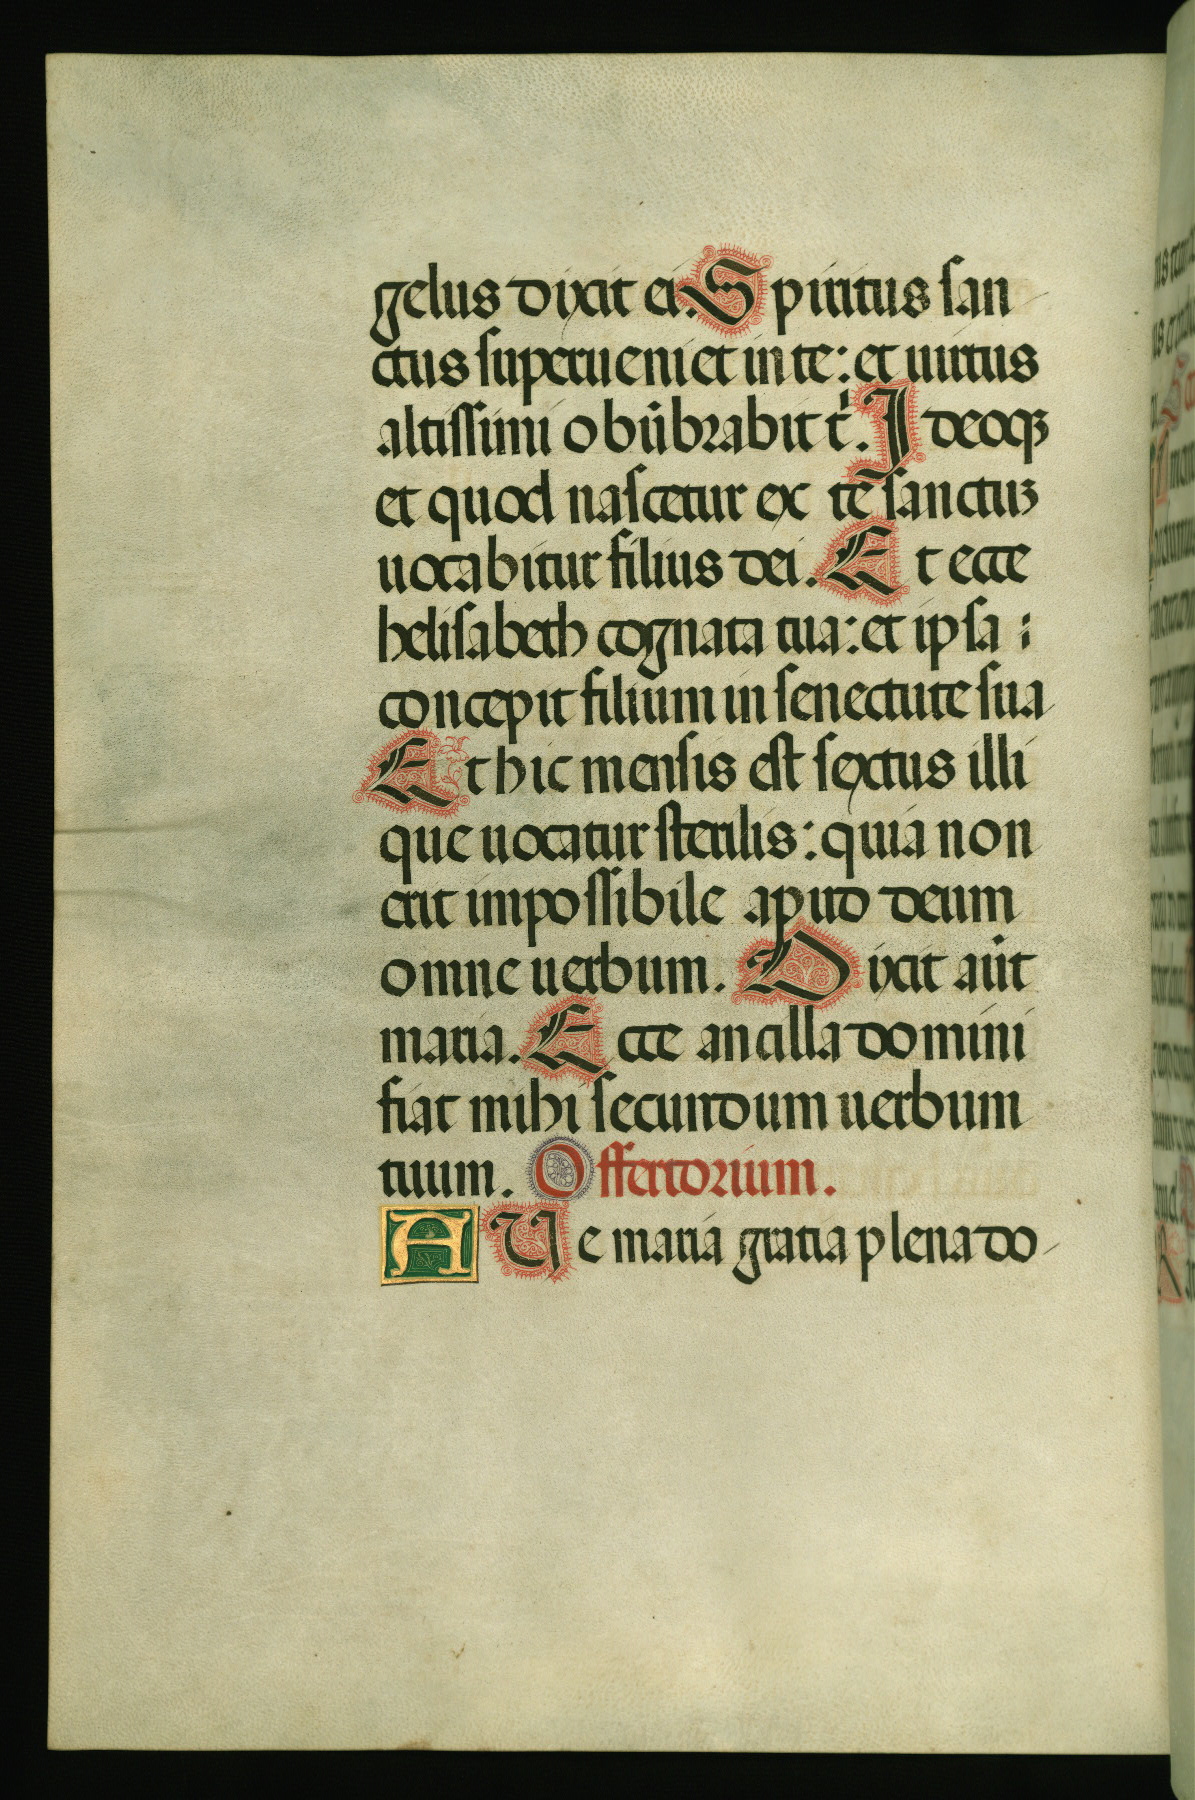 gelus dixit ei. Spiritus san
ctus superueniet in te: et uirtus
altissimi obūbrabit t̄. Ideoqꝫ
et quod nascetur ex te sanctuꝫ
uocabitur filius dei. Et ecce
helisabeth cognata tua: et ipsa
concepit filium in senectute sua
Et hic mensis est sextus illi
que uocatur sterilis: quia non
erit impossibile apud deum
omne uerbum. Dixit aūt
maria. Ecce ancilla domini
fiat mihi secundum uerbum
tuum. Offertorium.
AUe maria gratia plena do